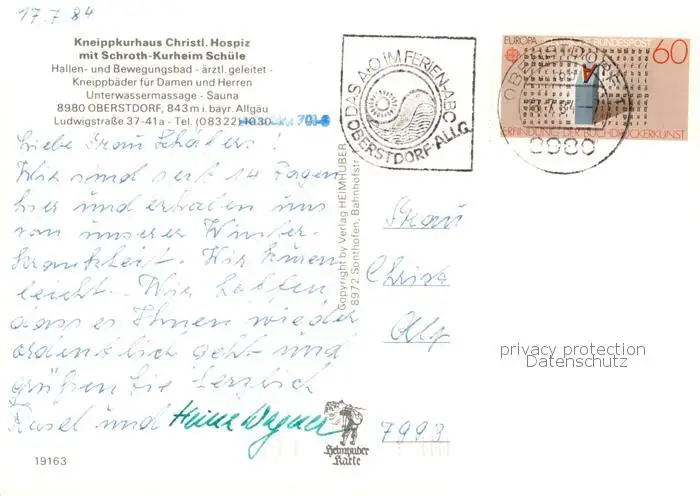 17.7.84
Kneippkurhaus Christl. Hospiz
mit Schroth-Kurheim Schüle
Hallen- und Bewegungsbad - ärztl. geleitet -
Kneippbäder für Damen und Herren
Unterwassermassage - Sauna
8980 OBERSTDORF, 843 m i. bayr. Allgäu
Ludwigstraße 37-41a - Tel. (08322) 1030
Liebe Frau
Wir sind seit 14 Tagen
hier und erholen uns
von unserer Winter-
krankheit. Wir kuren
leicht. Wir hoffen
dass es Ihnen wieder
ordentlich geht und
grüßen Sie herzlich
und Heinz Wagner
19163
Copyright by Verlag HEIMHUBER
8972 Sonthofen, Bahnhofstr.
DAS A+O IM FERIEN-ABC
OBERSTDORF·ALLG.
EUROPA
BUNDESPOST
60
ERFINDUNG DER BUCHDRUCKERKUNST
OBERSTDORF
8980
Frau
7993
Heimhuber
Karte
privacy protection
Datenschutz